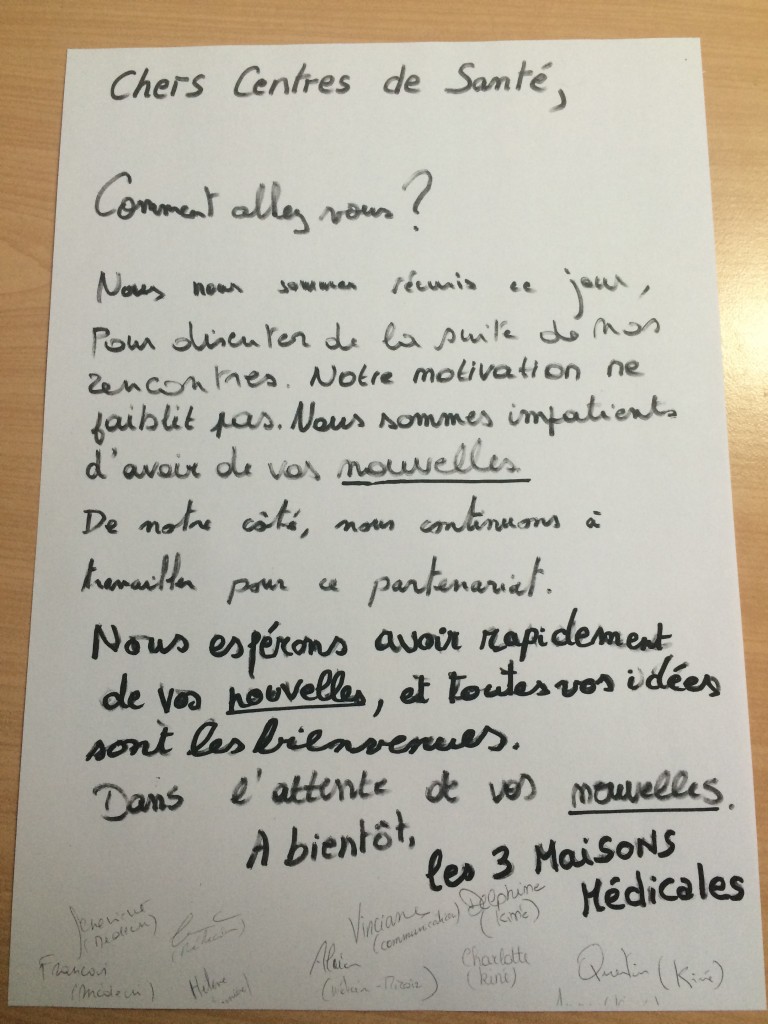 Chers Centres de Santé,
Comment allez vous ?
Nous nous sommes réunis ce jour,
Pour discuter de la suite de nos
rencontres. Notre motivation ne
faiblit pas. Nous sommes impatients
d'avoir de vos nouvelles
De notre côté, nous continuons à
travailler pour ce partenariat.
Nous espérons avoir rapidement
de vos nouvelles, et toutes vos idées
sont les bienvenues.
Dans l'attente de vos nouvelles.
A bientôt,
les 3 Maisons
Médicales
Delphine
(kiné)
Vinciane
(communication)
(Médecin)
Alain
Charlotte
(kiné)
Quentin (Kiné)
François
(Médecin)
Hélène